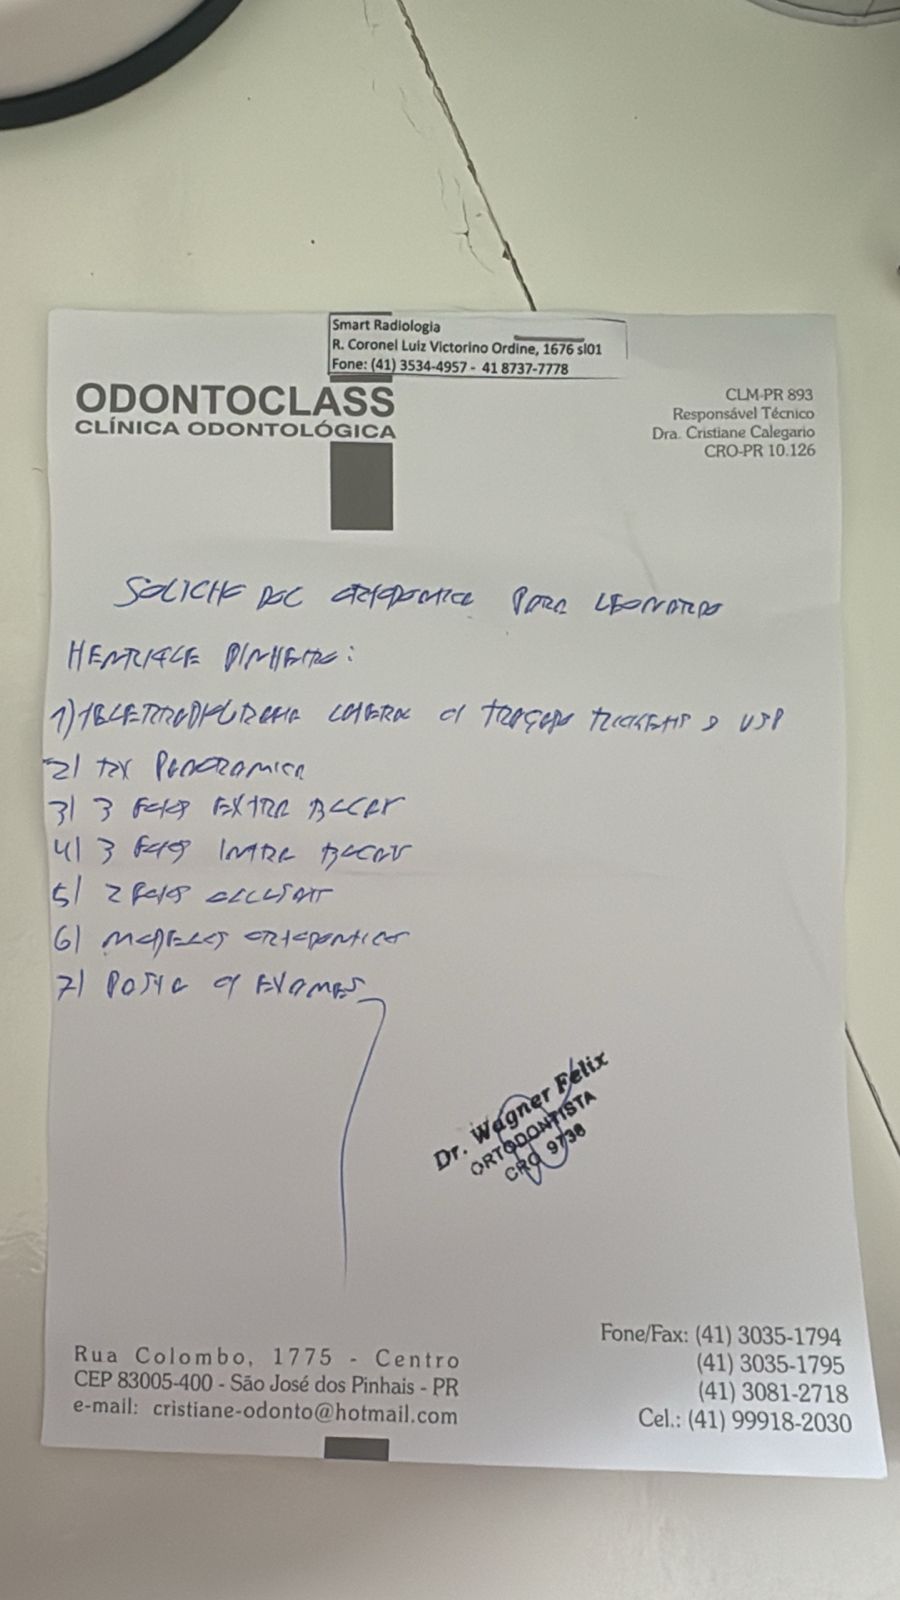 Smart Radiologia
R. Coronel Luiz Victorino Ordine, 1676 sl01
Fone: (41) 3534-4957 - 41 8737-7778
ODONTOCLASS
CLÍNICA ODONTOLÓGICA
CLM-PR 893
Responsável Técnico
Dra. Cristiane Calegario
CRO-PR 10.126
SOLICITO DOC ORTODONTICA PARA LEONARDO
HENRIQUE PINHEIRO:
1) TELERRADIOGRAFIA LATERAL C/ TRAÇADO USP
2) RX PANORAMICA
3) 3 FOTOS EXTRA BUCAIS
4) 3 FOTOS INTRA BUCAIS
5) 2 FOTOS OCLUSAIS
6) MODELOS ORTODONTICOS
7) PASTA C/ EXAMES
Dr. Wagner Felix
ORTODONTISTA
CRO 9736
Rua Colombo, 1775 - Centro
CEP 83005-400 - São José dos Pinhais - PR
e-mail: cristiane-odonto@hotmail.com
Fone/Fax: (41) 3035-1794
(41) 3035-1795
(41) 3081-2718
Cel.: (41) 99918-2030